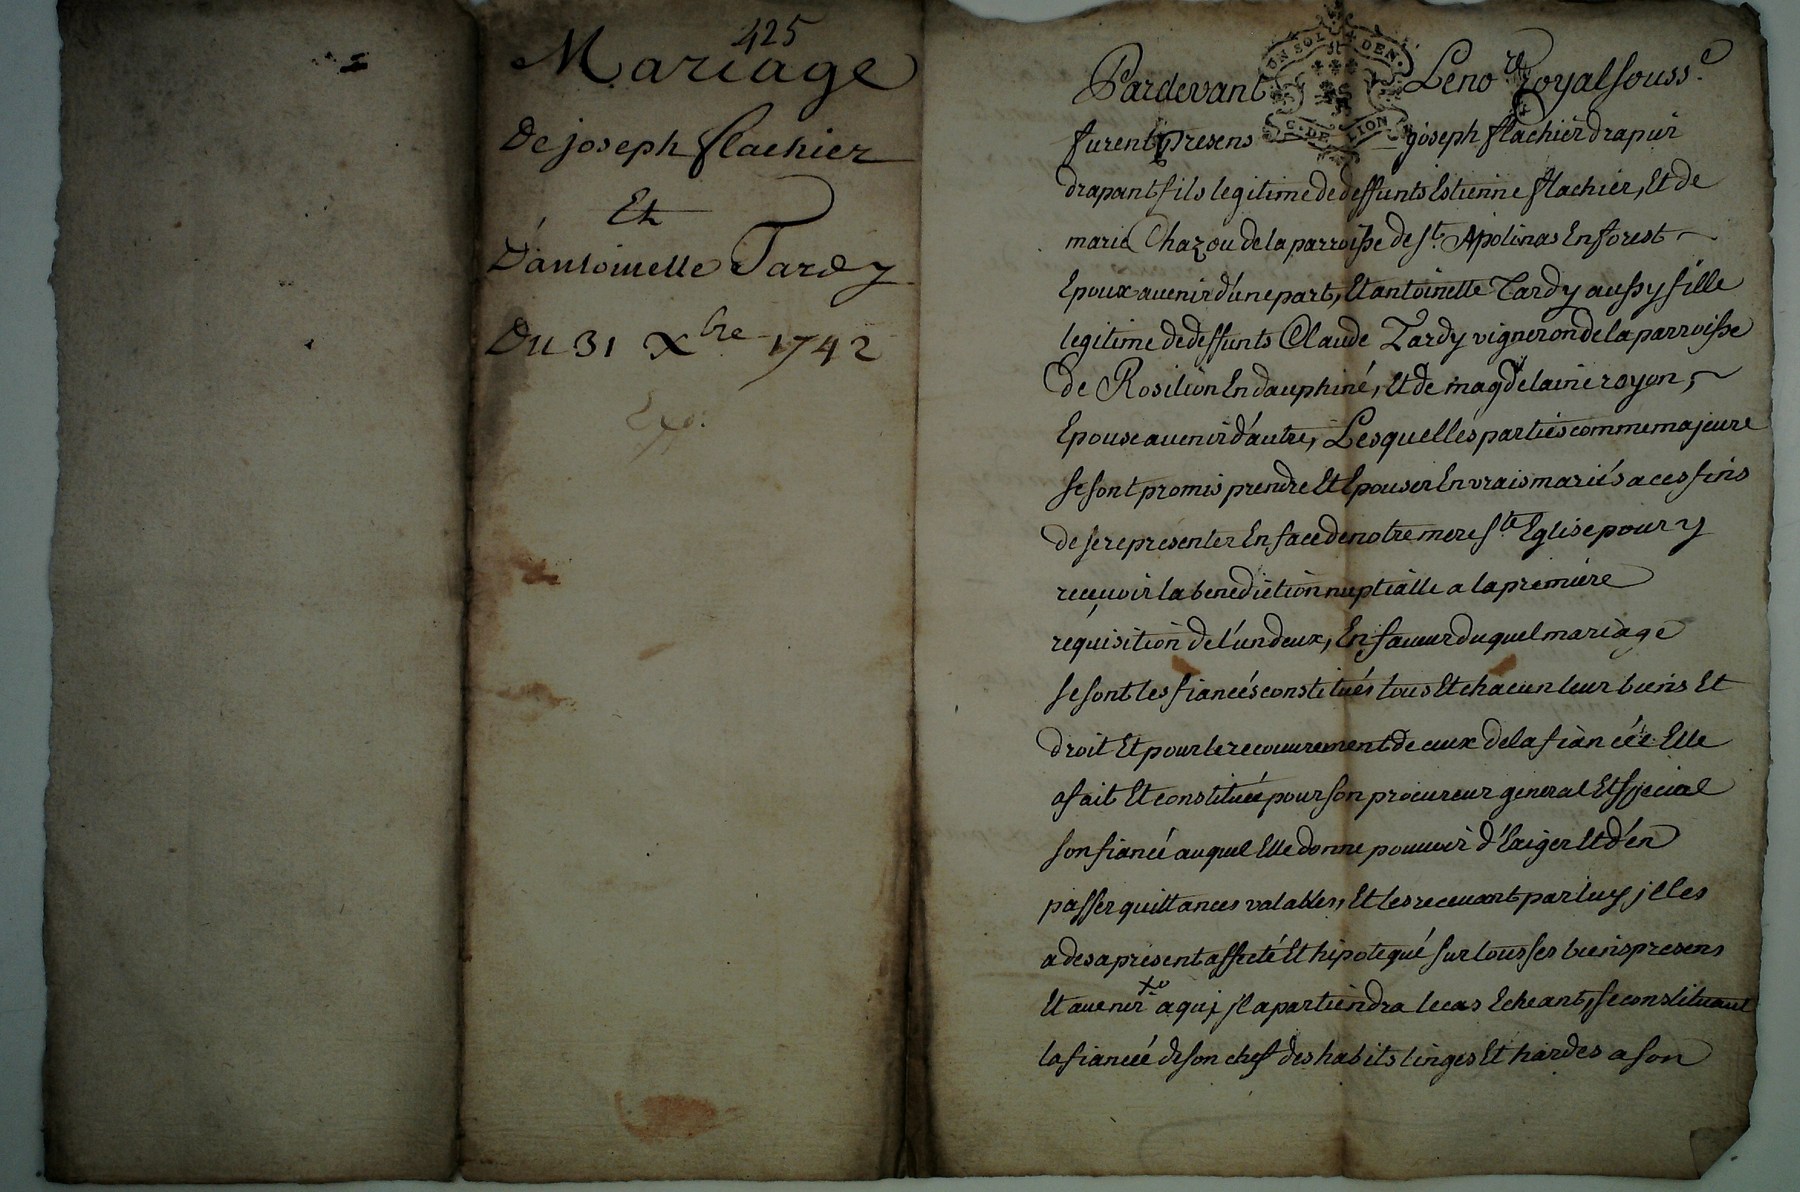 425
Mariage
De joseph flachier
Et
D'antoinette Tardy
Du 31 Xbre 1742
Exp.
UN SOL DEN.
G. DE LION
Pardevant Le nore Royal souss.é
furent presens joseph flachier drapier
drapant fils legitime de deffunts Estienne flachier, Et de
marie Chazou de la parroisse de St. Apolinas En forest
Epoux avenir d'une part, Et antoinette Tardy aussy fille
legitime de deffunts Claude Tardy vigneron de la parroisse
de Rosilion En dauphiné, Et de magdelaine royon,
Epouse avenir d'autre, Lesquelles parties comme majeure
se sont promis prendre Et Epouser En vrais mariés a ces fins
de se representer En face de notre mere Ste Eglise pour y
reçevoir la benediction nuptialle a la premiere
requisition de l'un deux, En faveur du quel mariage
se sont les fiancés constitués tous Et chacun leur biens Et
droit Et pour le recouvrement de ceux de la fiancéé Elle
a fait Et constitué pour son procureur general Et special
son fiancé auquel Elle donne pouvoir d'Exiger Et d'en
passer quittances valables, Et les recevant par luy jl les
a des a present affecté Et hipotequé sur tous ses biens presens
Et avenir a qui jl apartiendra le cas Echeant, se constituant
la fianceé de son chef des habits linges Et hardes a son